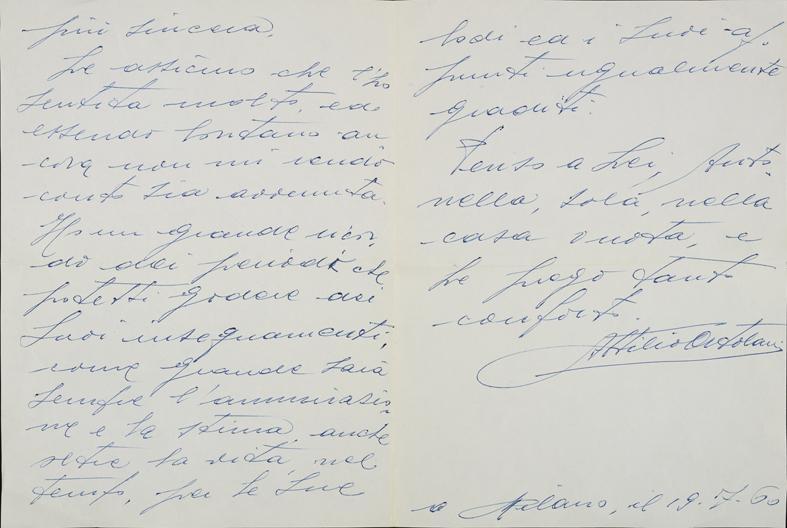 più sincera.
Le assicuro che l'ho
sentita molto, ed
essendo lontano an
cora non mi rendo
conto sia avvenuta.
Ho un grande ricor,
do dei periodi che
potetti godere dei
Suoi insegnamenti,
come grande sarà
sempre l'ammirazio,
ne e la stima, anche
oltre la vita, nel
tempo, per le Sue
lodi ed i Suoi ap,
punti ugualmente
graditi.
Penso a Lei, Anto,
nella, sola, nella
casa vuota, e
Le prego tanto
conforto.
Attilio Ortolani
Milano, il 19.7.60